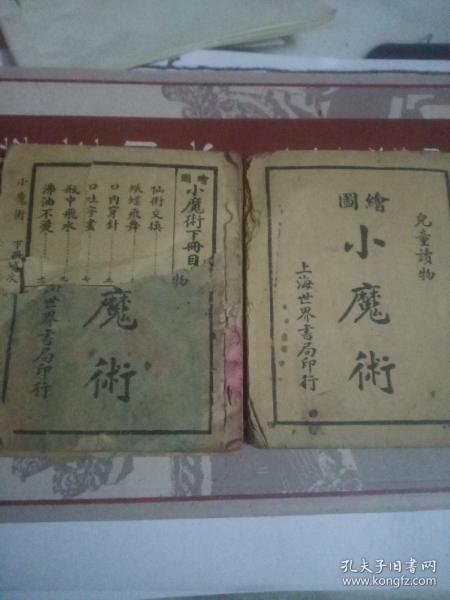 繪圖小魔術下冊目
仙術交換
蛺蝶飛舞
口內穿針
口吐字畫
瓶中飛水
沸油不燙
小魔術
物
魔術
世界書局印行
兒童讀物
繪圖
小魔術
上海世界書局印行
孔夫子旧书网
www.kongfz.com